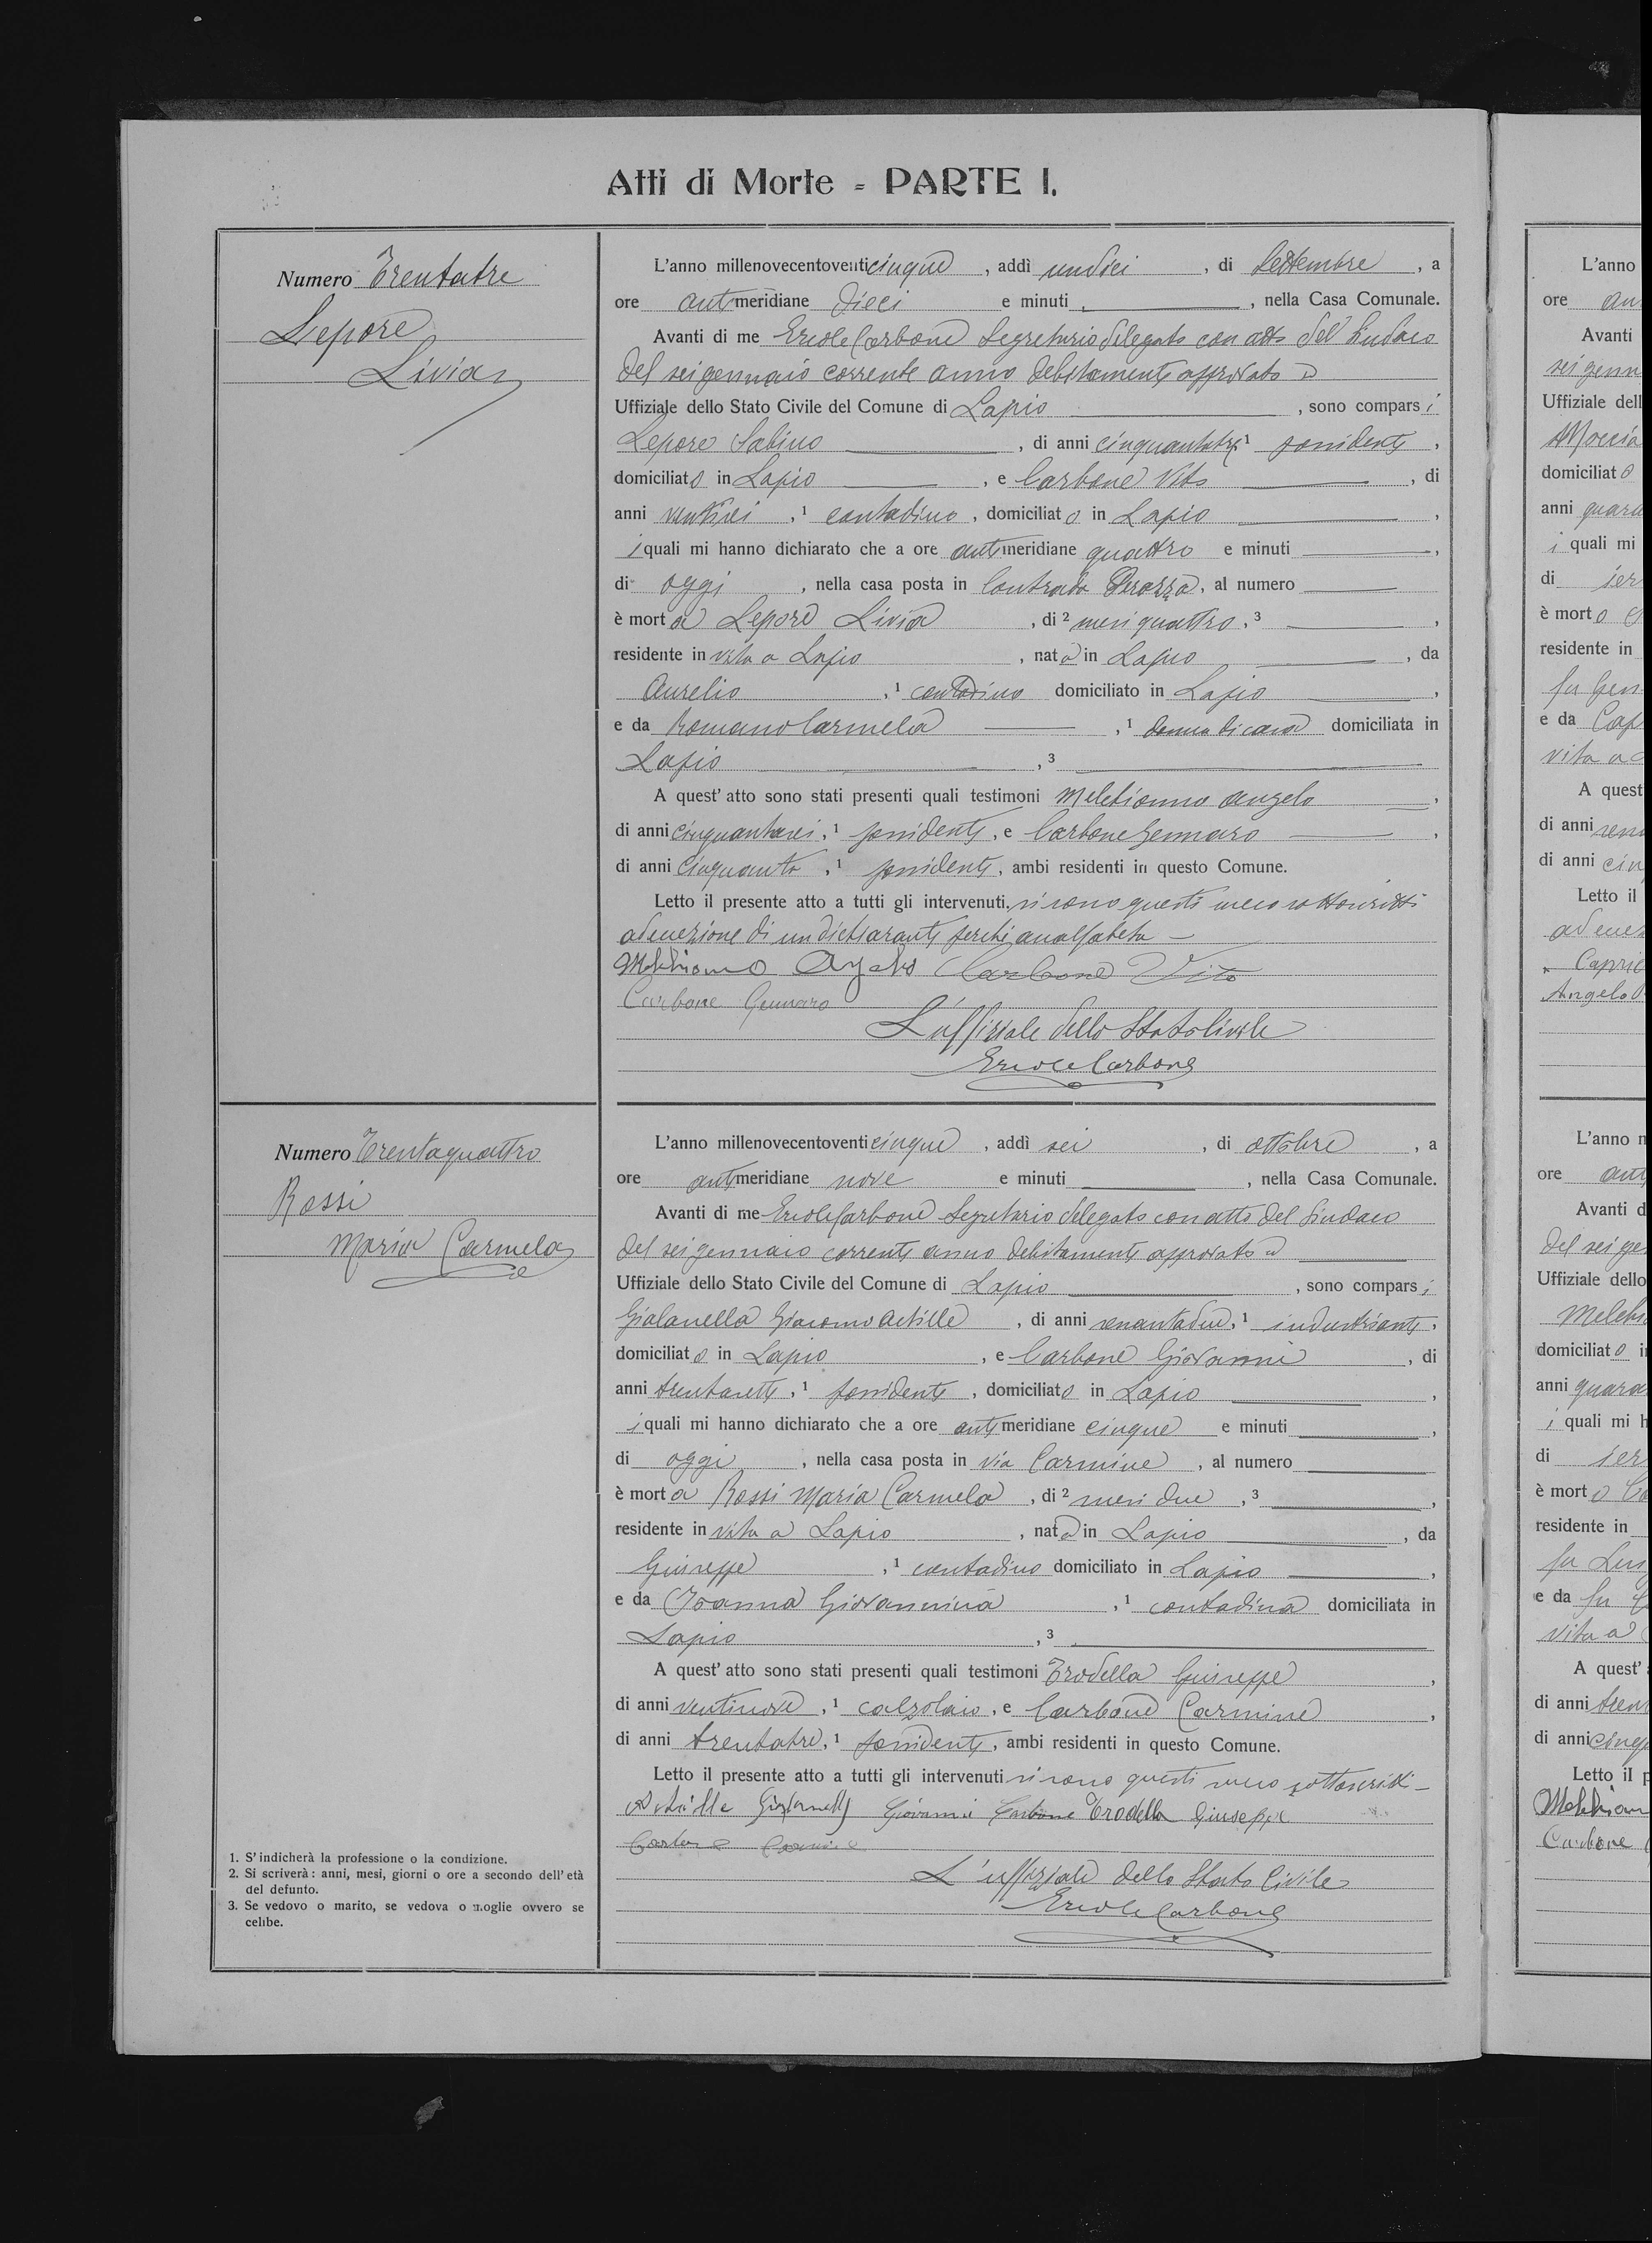 Atti di Morte = PARTE I.
Numero Trentatre
Lepore
Livia
L'anno millenovecentoventicinque, addì undici, di Settembre, a
ore antimeridiane dieci e minuti, nella Casa Comunale.
Avanti di me Ercole Carbone Segretario delegato con atto del Sindaco
del sei gennaio corrente anno debitamente approvato
Uffiziale dello Stato Civile del Comune di Lapio, sono comparsi
Lepore Sabino, di anni cinquantatre, 1 possidente,
domiciliato in Lapio, e Carbone Vito, di
anni ventisei, 1 contadino, domiciliato in Lapio,
i quali mi hanno dichiarato che a ore antimeridiane quattro e minuti,
di oggi, nella casa posta in Contrada, al numero
è morta Lepore Livia, di 2 mesi quattro, 3,
residente in vita a Lapio, nata in Lapio, da
Aurelio, 1 contadino domiciliato in Lapio,
e da Romano Carmela, 1 donna di casa domiciliata in
Lapio, 3
A quest'atto sono stati presenti quali testimoni Melchionno Angelo,
di anni cinquantasei, 1 possidente, e Carbone Gennaro,
di anni cinquanta, 1 possidente, ambi residenti in questo Comune.
Letto il presente atto a tutti gli intervenuti, si sono questi meco sottoscritti
ad eccezione di un dichiarante perchè analfabeta
Melchionno Angelo Carbone Vito
Carbone Gennaro
L'uffiziale dello Stato Civile
Ercole Carbone
Numero Trentaquattro
Rossi
Maria Carmela
L'anno millenovecentoventicinque, addì sei, di ottobre, a
ore antimeridiane nove e minuti, nella Casa Comunale.
Avanti di me Ercole Carbone Segretario delegato con atto del Sindaco
del sei gennaio corrente anno debitamente approvato
Uffiziale dello Stato Civile del Comune di Lapio, sono comparsi
Gialanella Giacomo Achille, di anni, 1 industriante,
domiciliato in Lapio, e Carbone Giovanni, di
anni trentasette, 1 possidente, domiciliato in Lapio,
i quali mi hanno dichiarato che a ore antimeridiane cinque e minuti,
di oggi, nella casa posta in via Carmine, al numero
è morta Rossi Maria Carmela, di 2 mesi due, 3,
residente in vita a Lapio, nata in Lapio, da
Giuseppe, 1 contadino domiciliato in Lapio,
e da Ioanna Giovannina, 1 contadina domiciliata in
Lapio, 3
A quest'atto sono stati presenti quali testimoni Trodella Giuseppe,
di anni ventinove, 1 calzolaio, e Carbone Carmine,
di anni trentatre, 1 possidente, ambi residenti in questo Comune.
Letto il presente atto a tutti gli intervenuti si sono questi meco sottoscritti
Achille Gialanella Giovanni Carbone Trodella Giuseppe
Carbone Carmine
L'uffiziale dello Stato Civile
Ercole Carbone
1. S'indicherà la professione o la condizione.
2. Si scriverà: anni, mesi, giorni o ore a secondo dell'età
del defunto.
3. Se vedovo o marito, se vedova o moglie ovvero se
celibe.
L'anno
ore
Avanti
sei genn
Uffiziale dell
domiciliato
anni quara
i quali mi
di ier
è morto
residente in
fu Gen
e da Cap
vita a
A quest
di anni
di anni cin
Letto il
Capri
Angelo
L'anno
ore ant
Avanti d
del sei ge
Uffiziale dello
Melch
domiciliato i
anni quara
i quali mi h
di ier
è morto
residente in
fu
e da fu
vita a
A quest'
di anni tren
di anni cinq
Letto il p
Melchion
Carbone